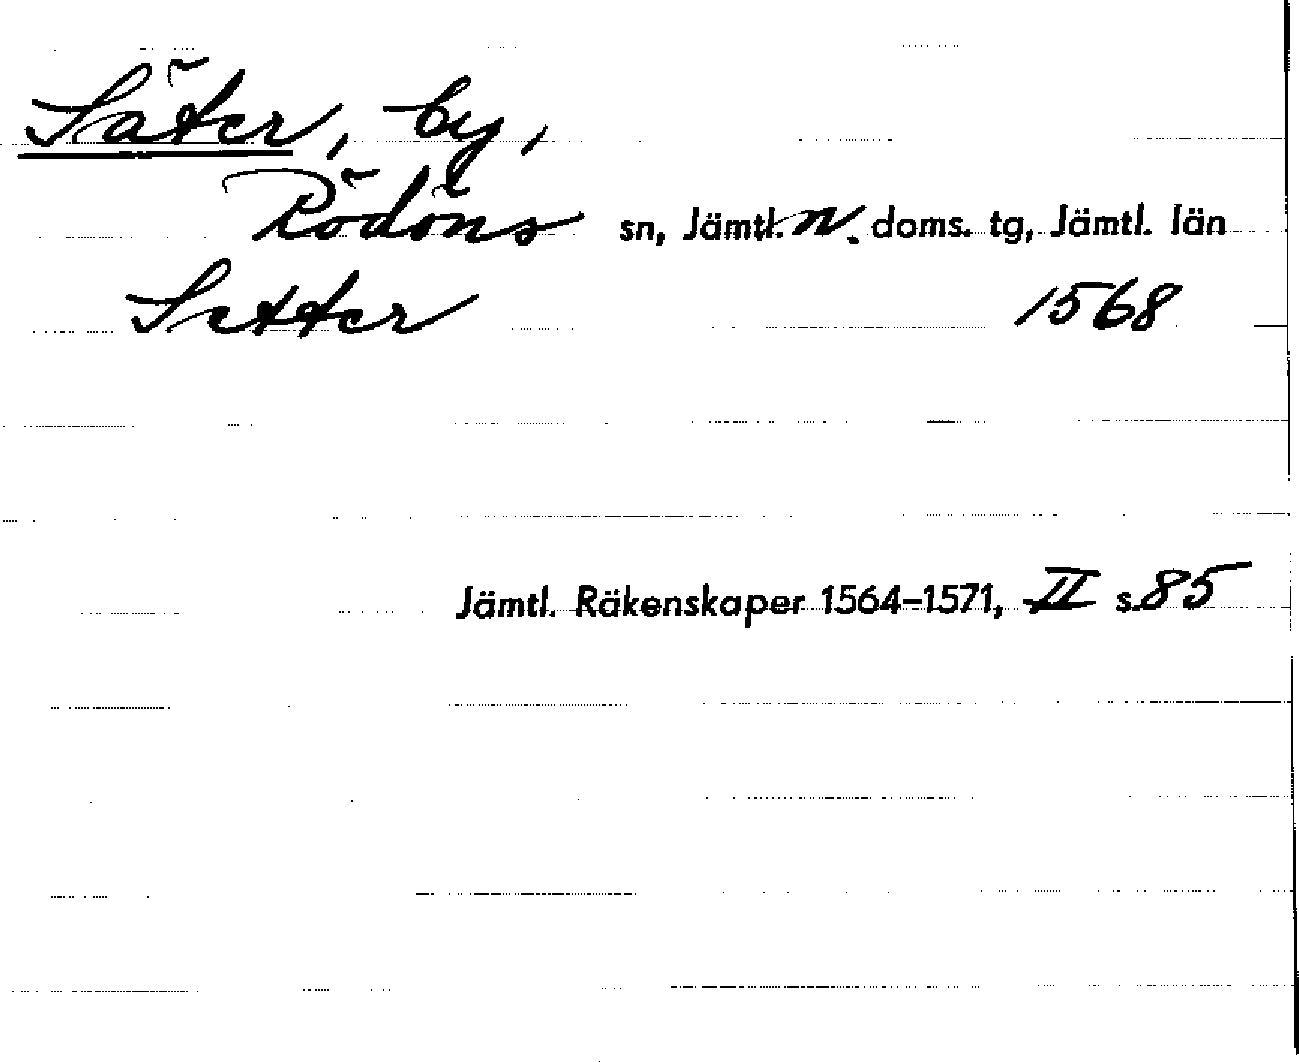 Säter, by,
Rödöns sn, Jämtl. n. doms. tg, Jämtl. län
Setter 1568
Jämtl. Räkenskaper 1564-1571, II s. 85